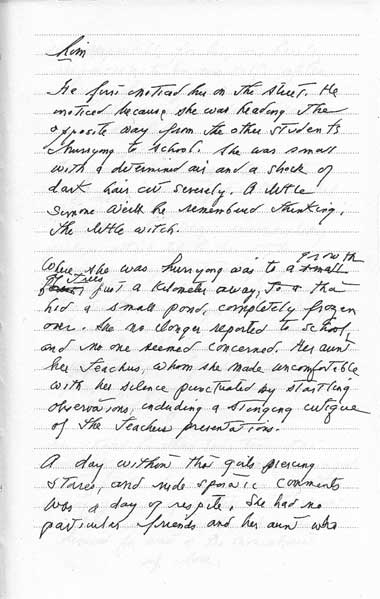 him
He first noticed her on the street. He
noticed because she was heading the
opposite way from the other students
hurrying to school. She was small
with a determined air and a shock of
dark hair cut severely. A little
Simone Weil he remembered thinking.
The little witch.
growth
Where she was hurrying was to a small
of trees
just a kilometer away, to a
hid a small pond, completely frozen
over. She no longer reported to school,
and no one seemed concerned. Her aunt
her teachers, whom she made uncomfortable
with her silence punctuated by startling
observations, including a stinging critique
of the teachers presentations.
A day without that girls piercing
stares, and rude comments
was a day of respite. She had no
particular friends and her aunt who